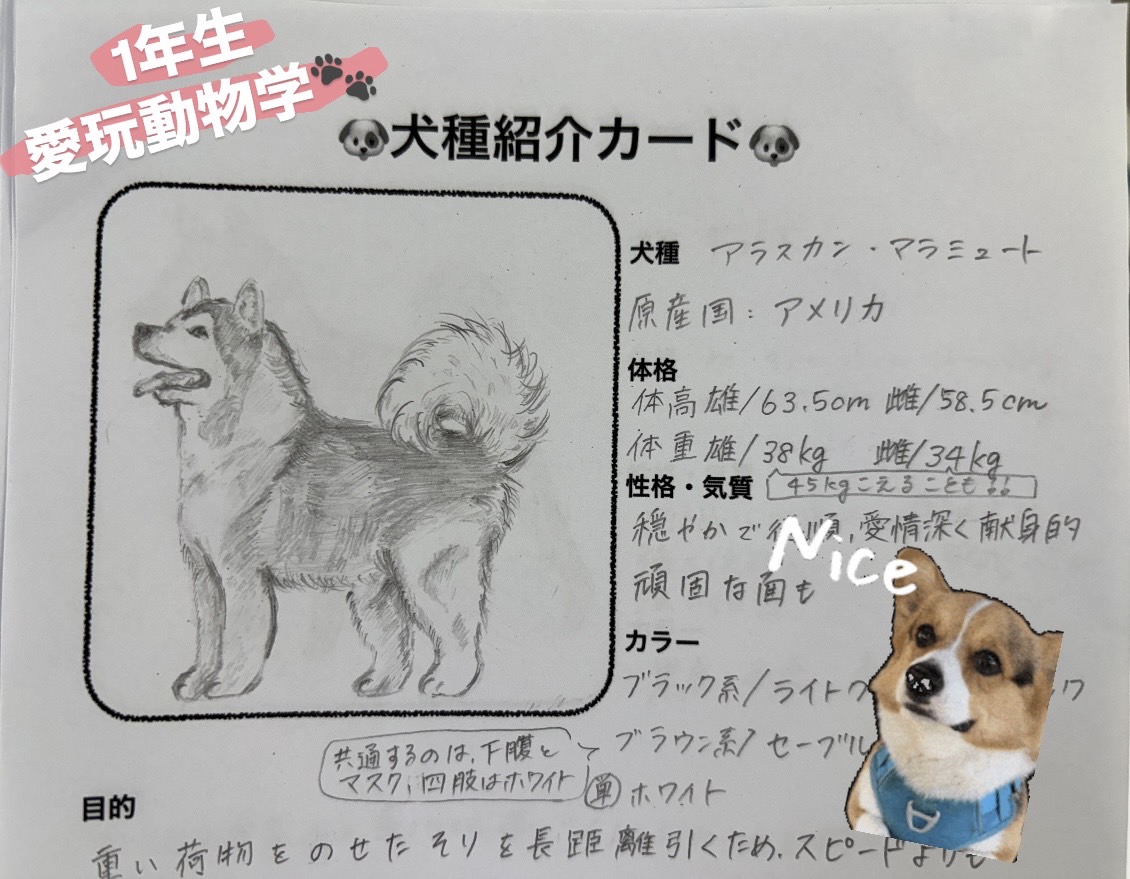 1年生
愛玩動物学
犬種紹介カード
犬種 アラスカン・マラミュート
原産国:アメリカ
体格
体高 雄/63.5cm 雌/58.5cm
体重 雄/38kg 雌/34kg
45kgこえることも
性格・気質
穏やかで 順,愛情深く献身的
頑固な面も
Nice
カラー
ブラック系/ライト
ブラウン系/セーブル
単 ホワイト
共通するのは、下腹と
マスク、四肢はホワイト
目的
重い荷物をのせたそりを長距離引くため.スピードよりも